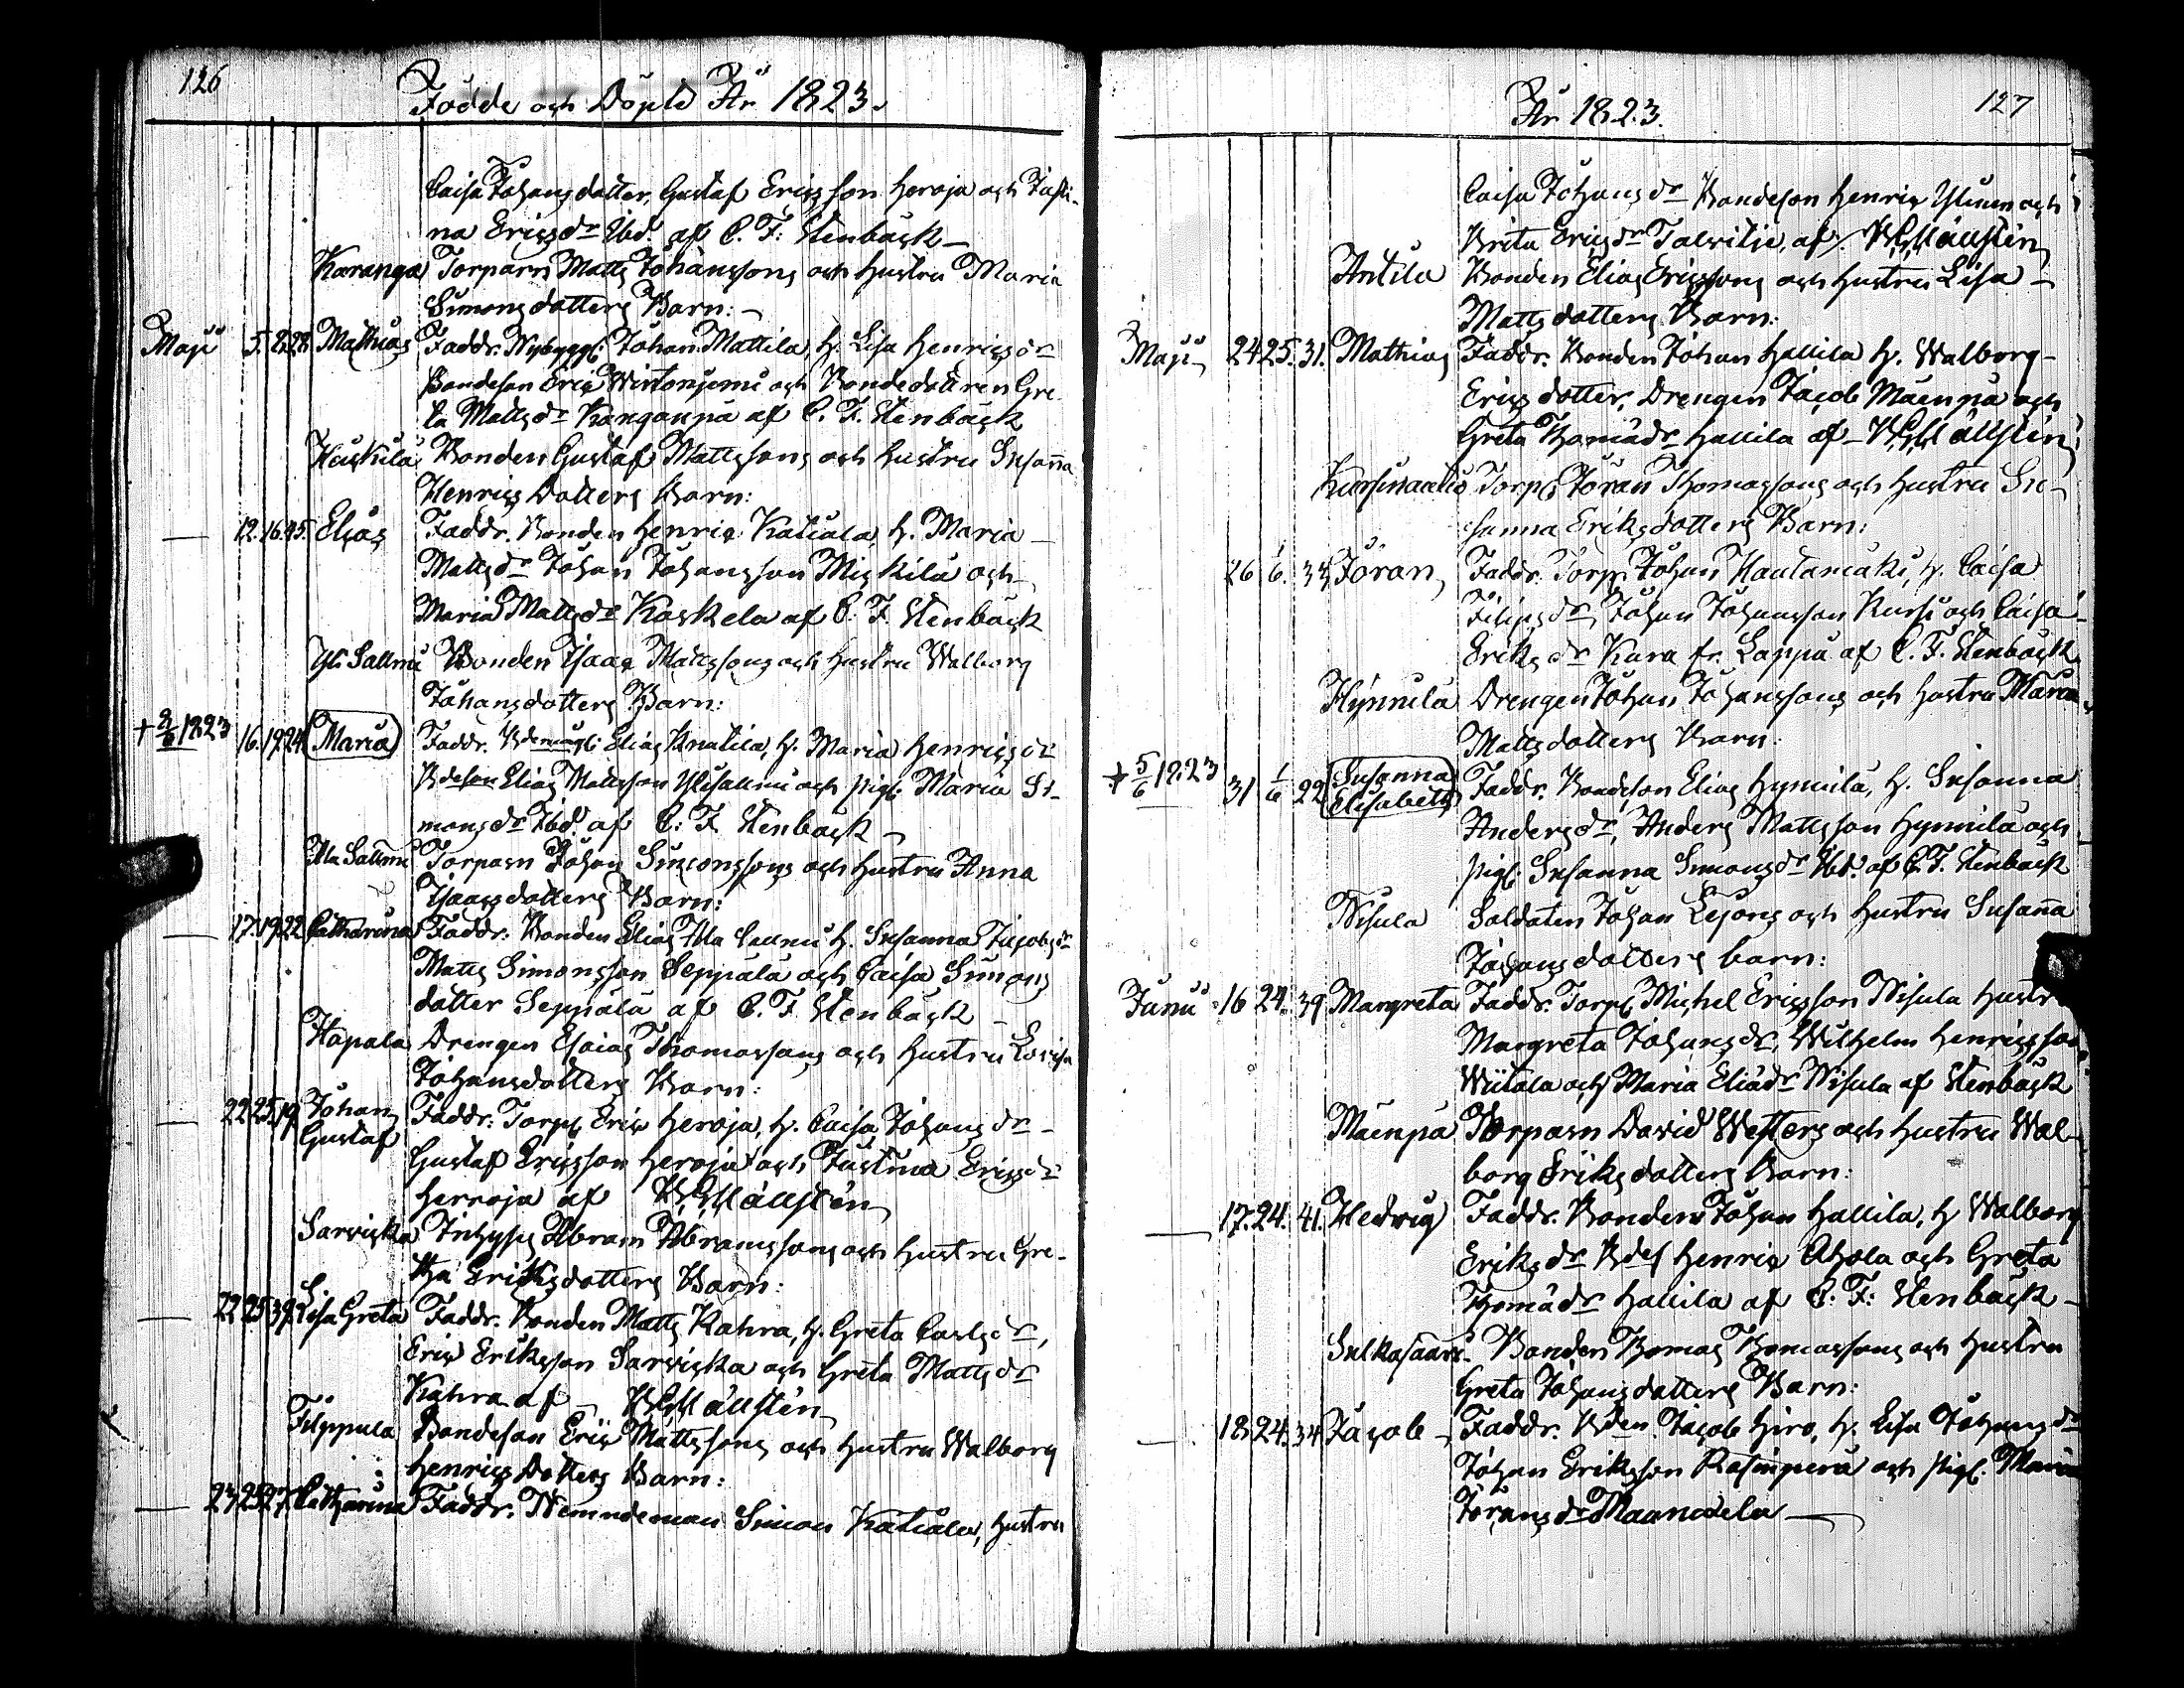 126
Födde och Döpte År 1823.
Caisa Johansdotter, Gustaf Ericsson Heroja och Justi-
na Ericsdr Ibd. af C. F. Stenbäck
Karanga Torparn Matts Johanssons och Hustru Maria
Simonsdotters Barn:
Maji 5. 8. 28. Mathias Faddr. Nybygg. Johan Mattila, h. Lisa Henricsdr
Bondeson Eric och Bondedottren Gre
ta Mattsdr Kangaspä af C. F. Stenbäck
Bonden Gustaf Mattssons och Hustru Susanna
Henrics Dotters Barn:
— 12. 16. 45. Elias Faddr. Bonden Henric Katiala, h. Maria
Mattsdr Johan Johansson Miskila och
Maria Mattsdr Koskela af C. F. Stenbäck
Yli Sallmi Bonden Isaac Mattssons och Hustru Walborg
Johansdotters Barn:
1823 16. 19. 24. Maria Faddr. Elias Knutila, h. Maria Henricsdr
Bdeson Elias Mattsson Ylisallmi och pig. Maria Si-
monsdr Ibd. af C. F. Stenbäck
Ala Sallmi Torparn Johan Simonssons och Hustru Anna
Isaacsdotters Barn:
— 17. 19. 22. Catharina Faddr. Bonden Elias Ala Sallmi h. Susanna Jacobsdr
Matts Simonsson Seppälä och Caisa Simons
dotter Seppälä af C. F. Stenbäck
Hapala Drengen Esaias Thomassons och Hustru Lovisa
Johansdotters Barn:
— 22 25 19 Johan Gustaf Faddr. Torp. Eric Heroja, h. Caisa Johansdr
Gustaf Ericsson Heroja och Justina Ericsdr
Herroja af Wällstén
Sarviska Inhyses Abram Abramssons och Hustru Gre-
tha Eriksdotters Barn:
— 22 25 39. Lisa Greta Faddr. Bonden Matts Kahra, h. Greta Carlsdr,
Eric Eriksson Sarviska och Greta Mattsdr
Kahra af Wällstén
Filppula Bondeson Eric Mattssons och Hustru Walborg
Henrics Dotters Barn:
— 23. 25 27. Catharina Faddr. Nemndeman Simon Katiala, Hustru
127
År 1823.
Caisa Johansdr Bondeson Henric och
Brita Ericsdr Talvitie, af Wällstén
Antila Bonden Elias Ericssons och Hustru Lisa
Mattsdotters Barn:
Maji 24 25. 31. Mathias Faddr. Bonden Johan Hallila h. Walborg
Ericsdotter, Drengen Jacob Mäenpä och
Greta Thomädr Hallila af Wällstén
Torp. Jöran Thomassons och Hustru Su-
sanna Eriksdotters Barn:
26 1/6. 34 Jöran Faddr. Torp. Johan Hautamäki, h. Caisa
Filipsdr, Johan Johansson Kursi och Caisa
Eriksdr Kura fr. Lappa af C. F. Stenbäck
Hynnilä Drengen Johan Johanssons och Hustru Maria
Mattsdotters Barn:
+ 5/6 1823 31 1/6 22 Susanna Elisabeth Faddr. Bondeson Elias Hynnilä, h. Susanna
Andersdr, Anders Mattsson Hynnilä och
pig. Susanna Simonsdr Ibd. af C. F. Stenbäck
Nisula Soldaten Johan Lejons och Hustru Susanna
Johansdotters barn:
Junii 16 24. 39 Margreta Faddr. Torp. Michel Ericsson Nisula Hustr
Margreta Johansdr, Wilhelm Henricsson
Wiitala och Maria Eliädr Nisula af Stenbäck
Mäenpä Torparn David Westers och Hustru Wal-
borg Eriksdotters Barn:
— 17. 24. 41. Hedwig Faddr. Bonden Johan Hallila, h Walborg
Eriksdr Bdes Henric Ahola och Greta
Thomädr Hallila af C. F. Stenbäck
Sulkasaari Bonden Thomas Thomassons och Hustru
Greta Johansdotters Barn:
— 18 24. 34 Jacob Faddr. Bden Jacob Hiro, h. Lisa Johansdr
Johan Eriksson Rasinperä och pig. Maria
Jöransdr Maunuela